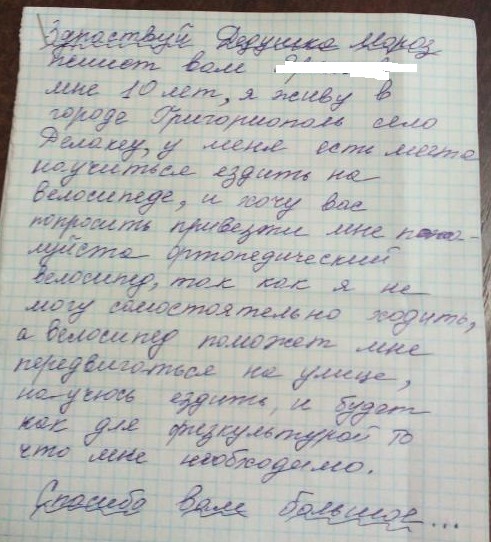 Здраствуй Дедушка Мароз
пишет вам
мне 10 лет, я живу в
городе Григориополь село
Делакеу, у меня есть мечта
научиться ездить на
велосипеде, и хочу вас
попросить привезти мне пожа-
луйста ортопедический
велосипед, так как я не
могу самостоятельно ходить,
а велосипед поможет мне
передвигаться на улице,
научюсь ездить, и будет
как для физкультурой то
что мне необходимо.
Спасибо вам большое...